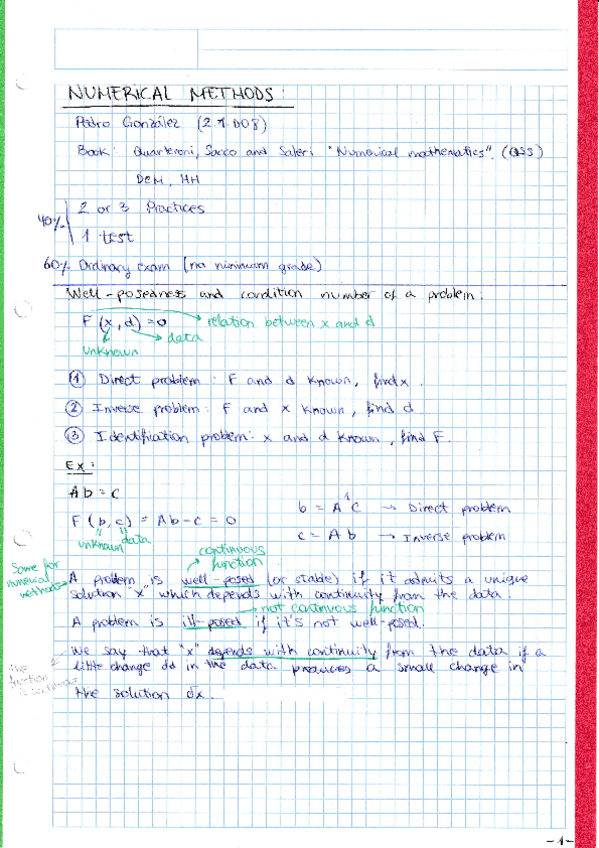 NUMERICAL METHODS:
Pedro González (2.1.D08)
Book: Quarteroni, Sacco and Saleri "Numerical mathematics". (QSS)
DCM, HH
40%
2 or 3 Practices
1 test
60% Ordinary exam (no minimum grade)
Well-posedness and condition number of a problem:
F (x, d) = 0 → relation between x and d
unknown → data
① Direct problem: F and d known, find x.
② Inverse problem: F and x known, find d
③ Identification problem: x and d known, find F.
Ex:
Ab = c
b = A⁻¹c → Direct problem
F (b, c) = Ab - c = 0
unknown data
c = Ab → Inverse problem
continuous function
Same for numerical methods → A problem is well-posed (or stable) if it admits a unique
solution "x" which depends with continuity from the data.
→ not continuous function
A problem is ill-posed if it's not well-posed.
We say that "x" depends with continuity from the data if a
little change δd in the data produces a small change in
the function is continuous
the solution δx.
-1-